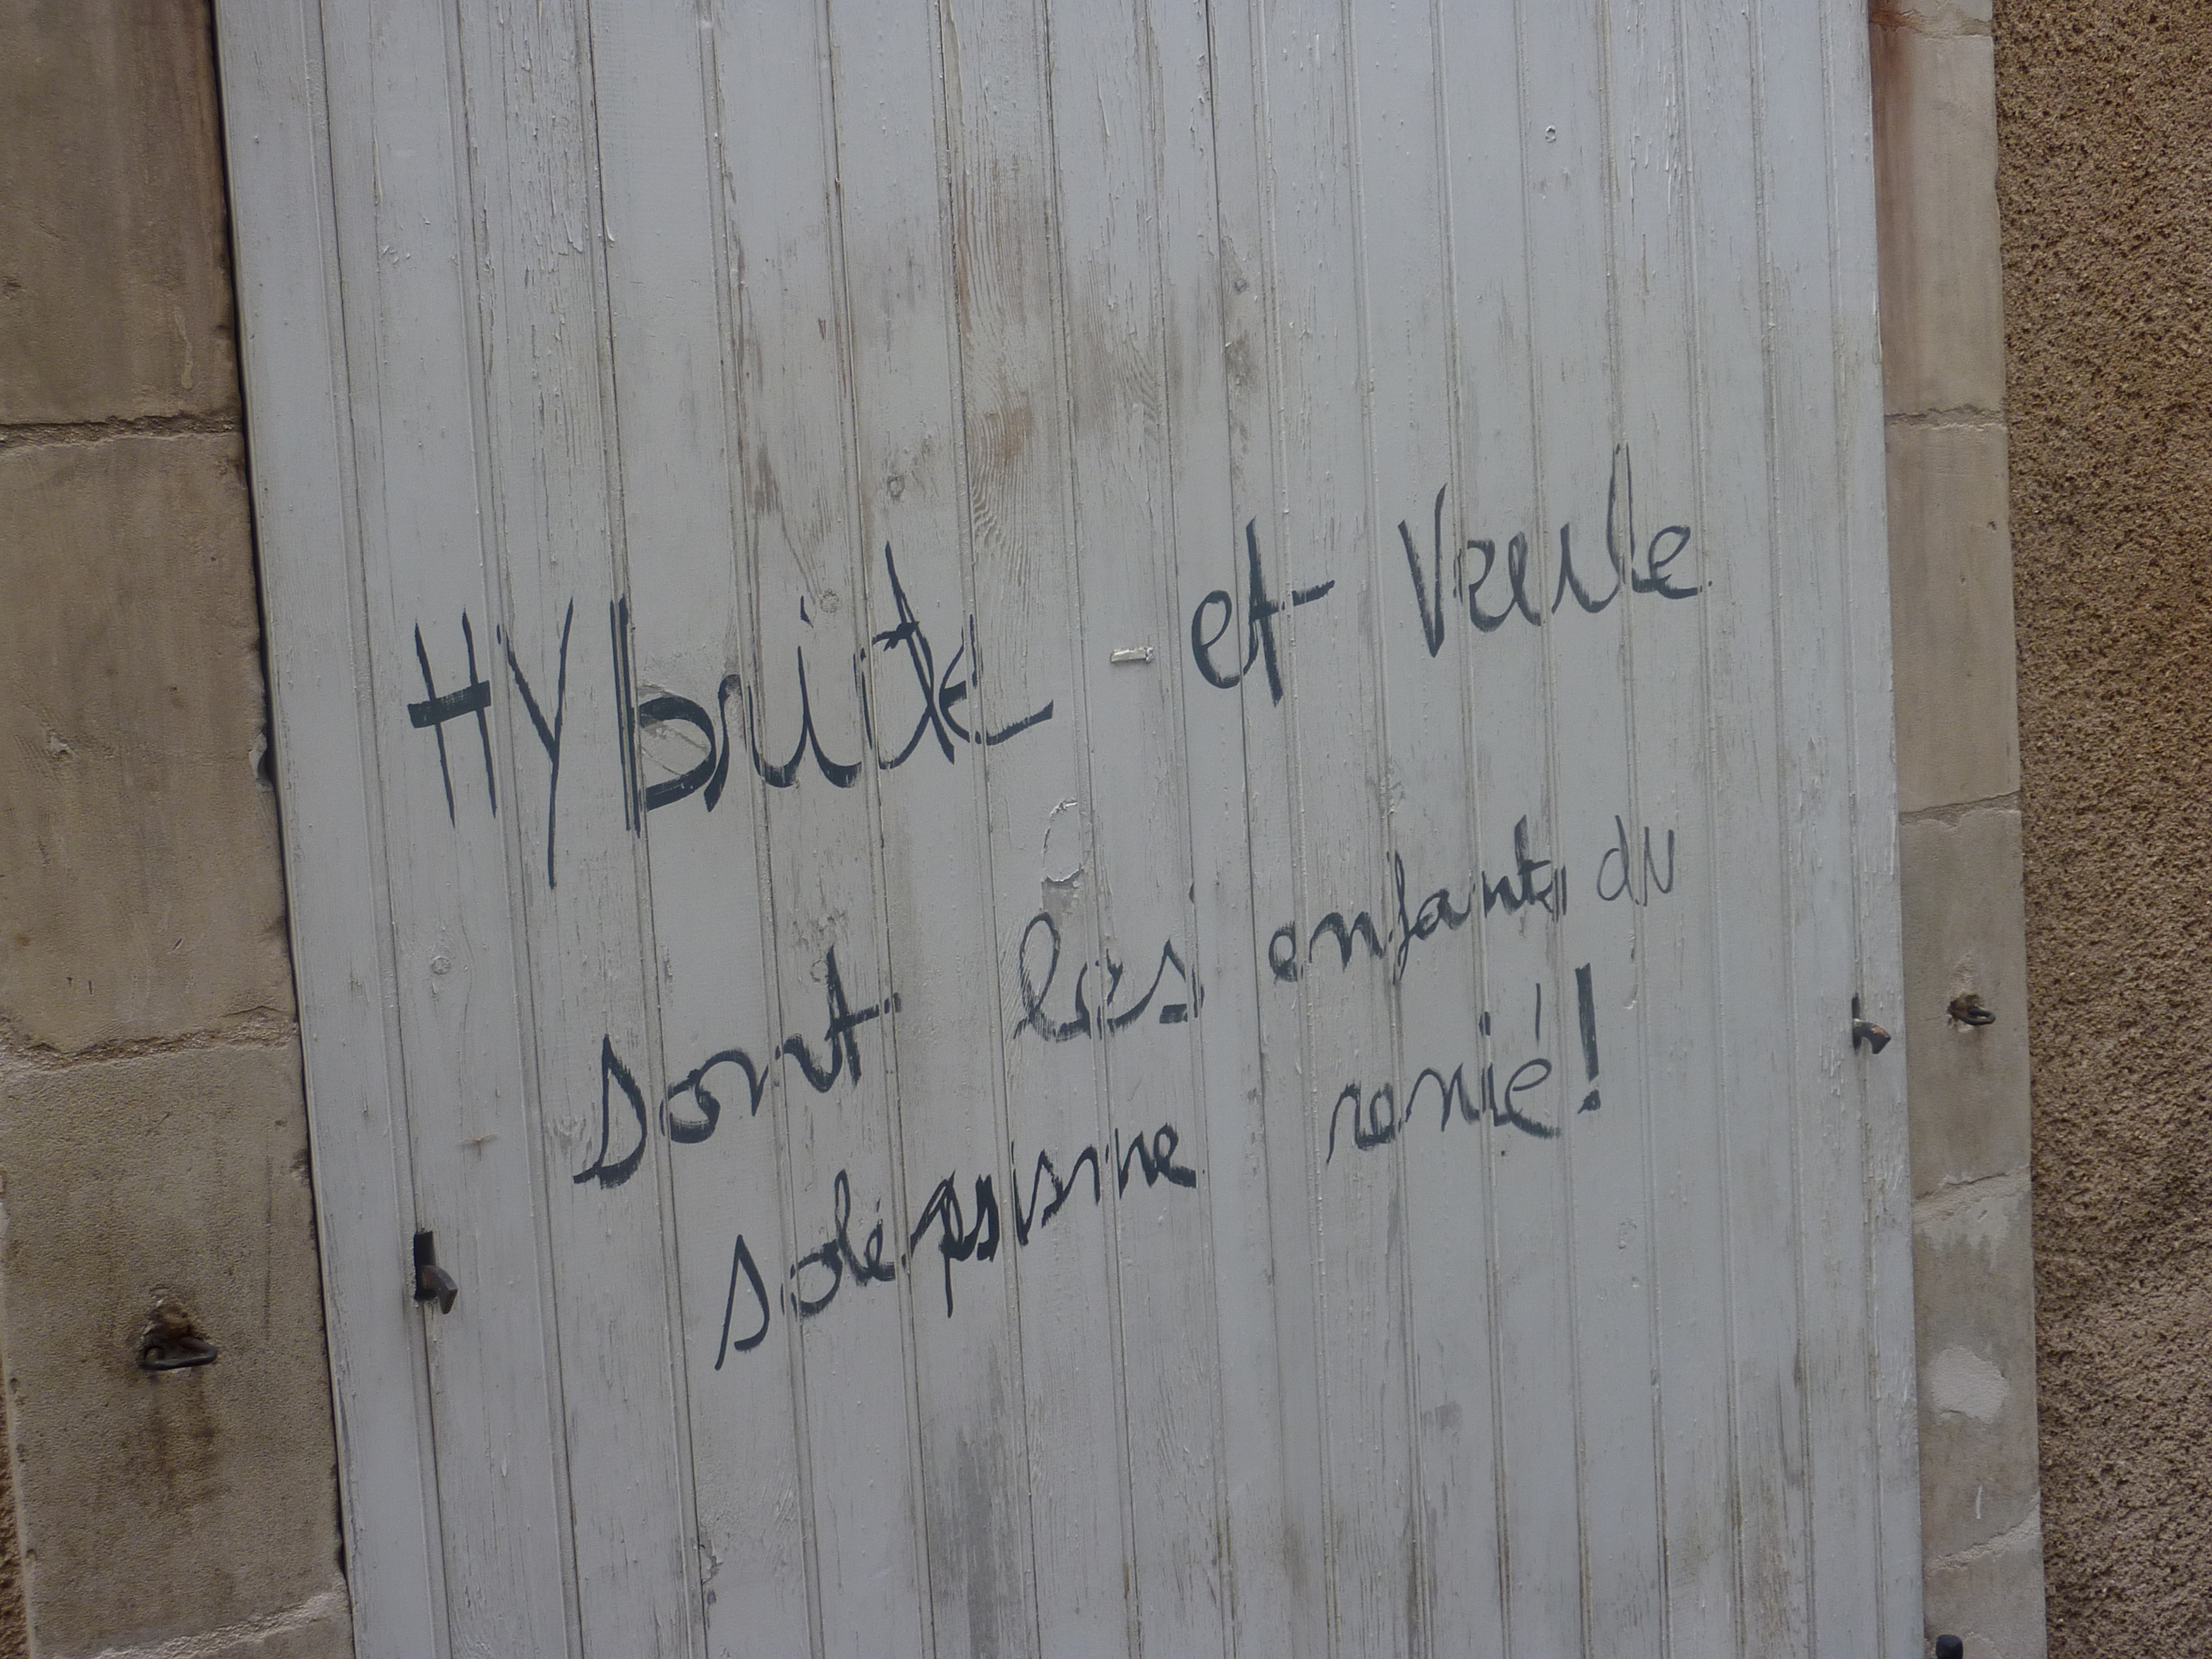 HYbride et Veule
sont les enfants du
solépsisme renié!